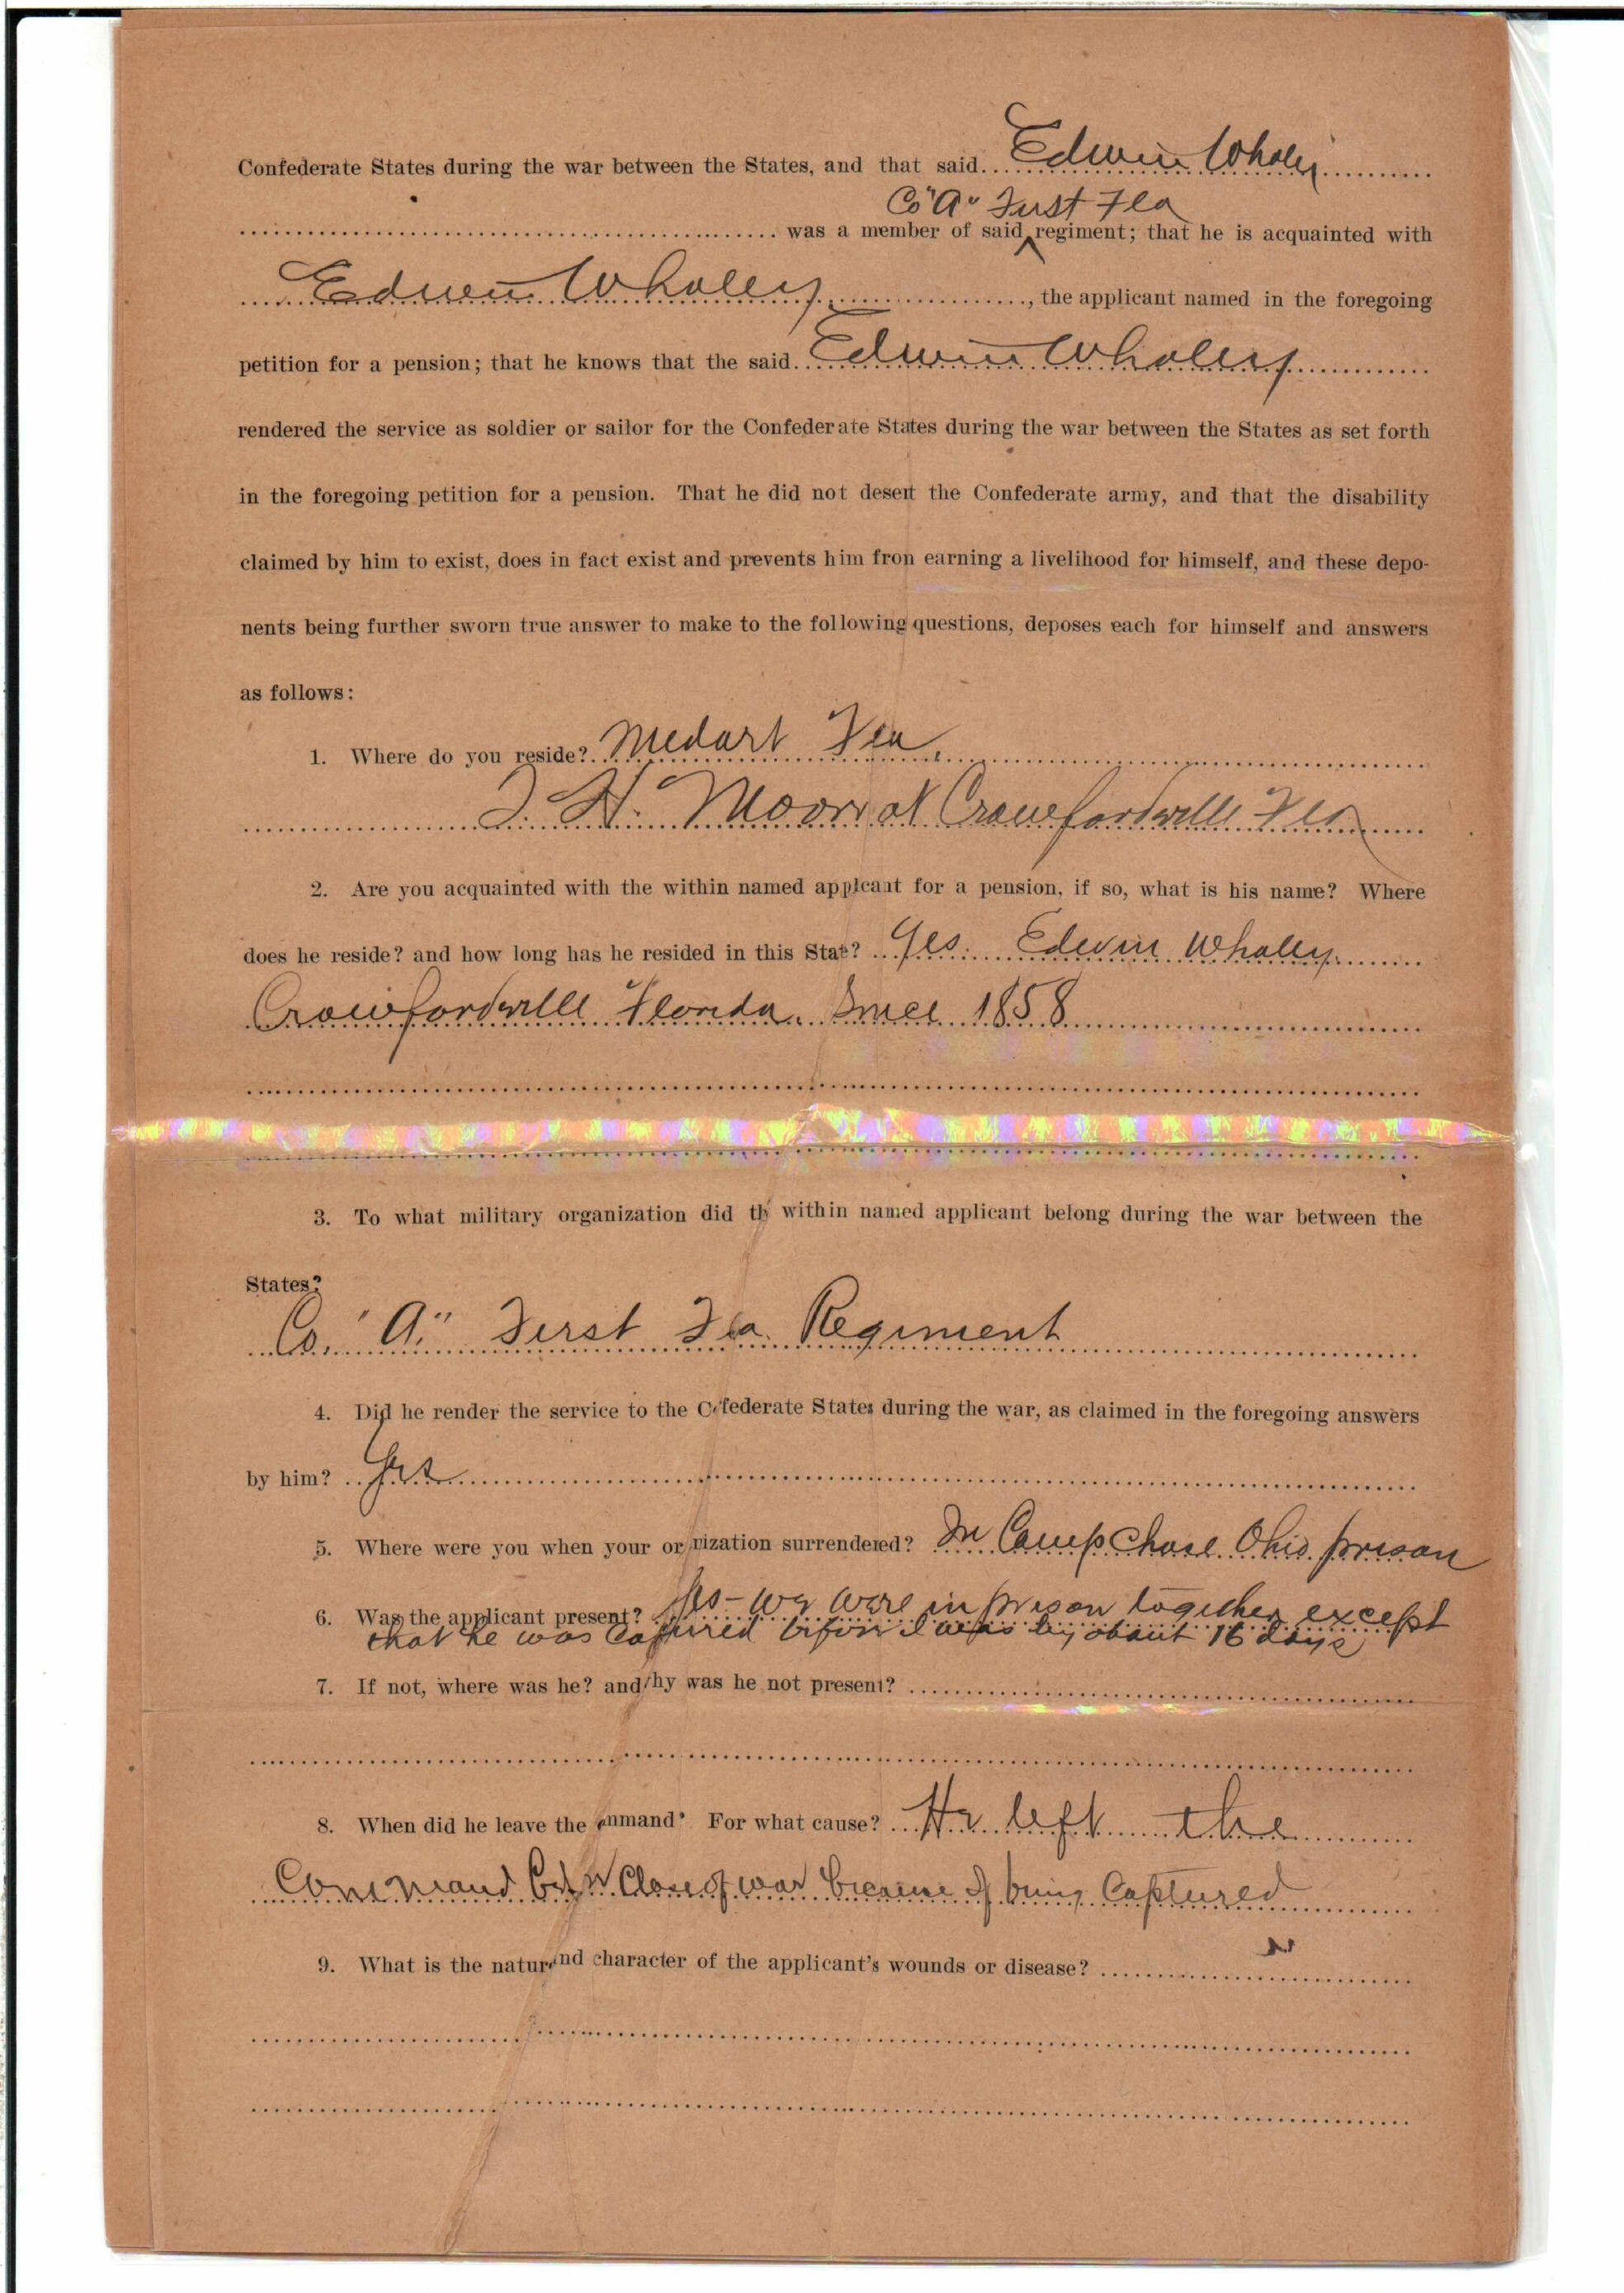 Confederate States during the war between the States, and that said Edwin Whaley
Co "A" First Fla
was a member of said regiment; that he is acquainted with
Edwin Whaley, the applicant named in the foregoing
petition for a pension; that he knows that the said Edwin Whaley
rendered the service as soldier or sailor for the Confederate States during the war between the States as set forth
in the foregoing petition for a pension. That he did not desert the Confederate army, and that the disability
claimed by him to exist, does in fact exist and prevents him fron earning a livelihood for himself, and these depo-
nents being further sworn true answer to make to the following questions, deposes each for himself and answers
as follows:
1. Where do you reside? Medart Fla.
H. Moore at Crawfordville Fla
2. Are you acquainted with the within named applcant for a pension, if so, what is his name? Where
does he reside? and how long has he resided in this Stat? Yes. Edwin Whaley.
Crawfordville Florida. Since 1858
3. To what military organization did th within named applicant belong during the war between the
States?
Co. "A." First Fla. Regiment
4. Did he render the service to the C federate States during the war, as claimed in the foregoing answers
by him? Yes
5. Where were you when your or nization surrendered? In Camp Chase Ohio prison
6. Was the applicant present? Yes - we were in prison together except
that he was captured before I was by about 16 days
7. If not, where was he? and hy was he not present?
8. When did he leave the mmand? For what cause? He left the
Command Close of war because of being Captured
9. What is the natur nd character of the applicant's wounds or disease?